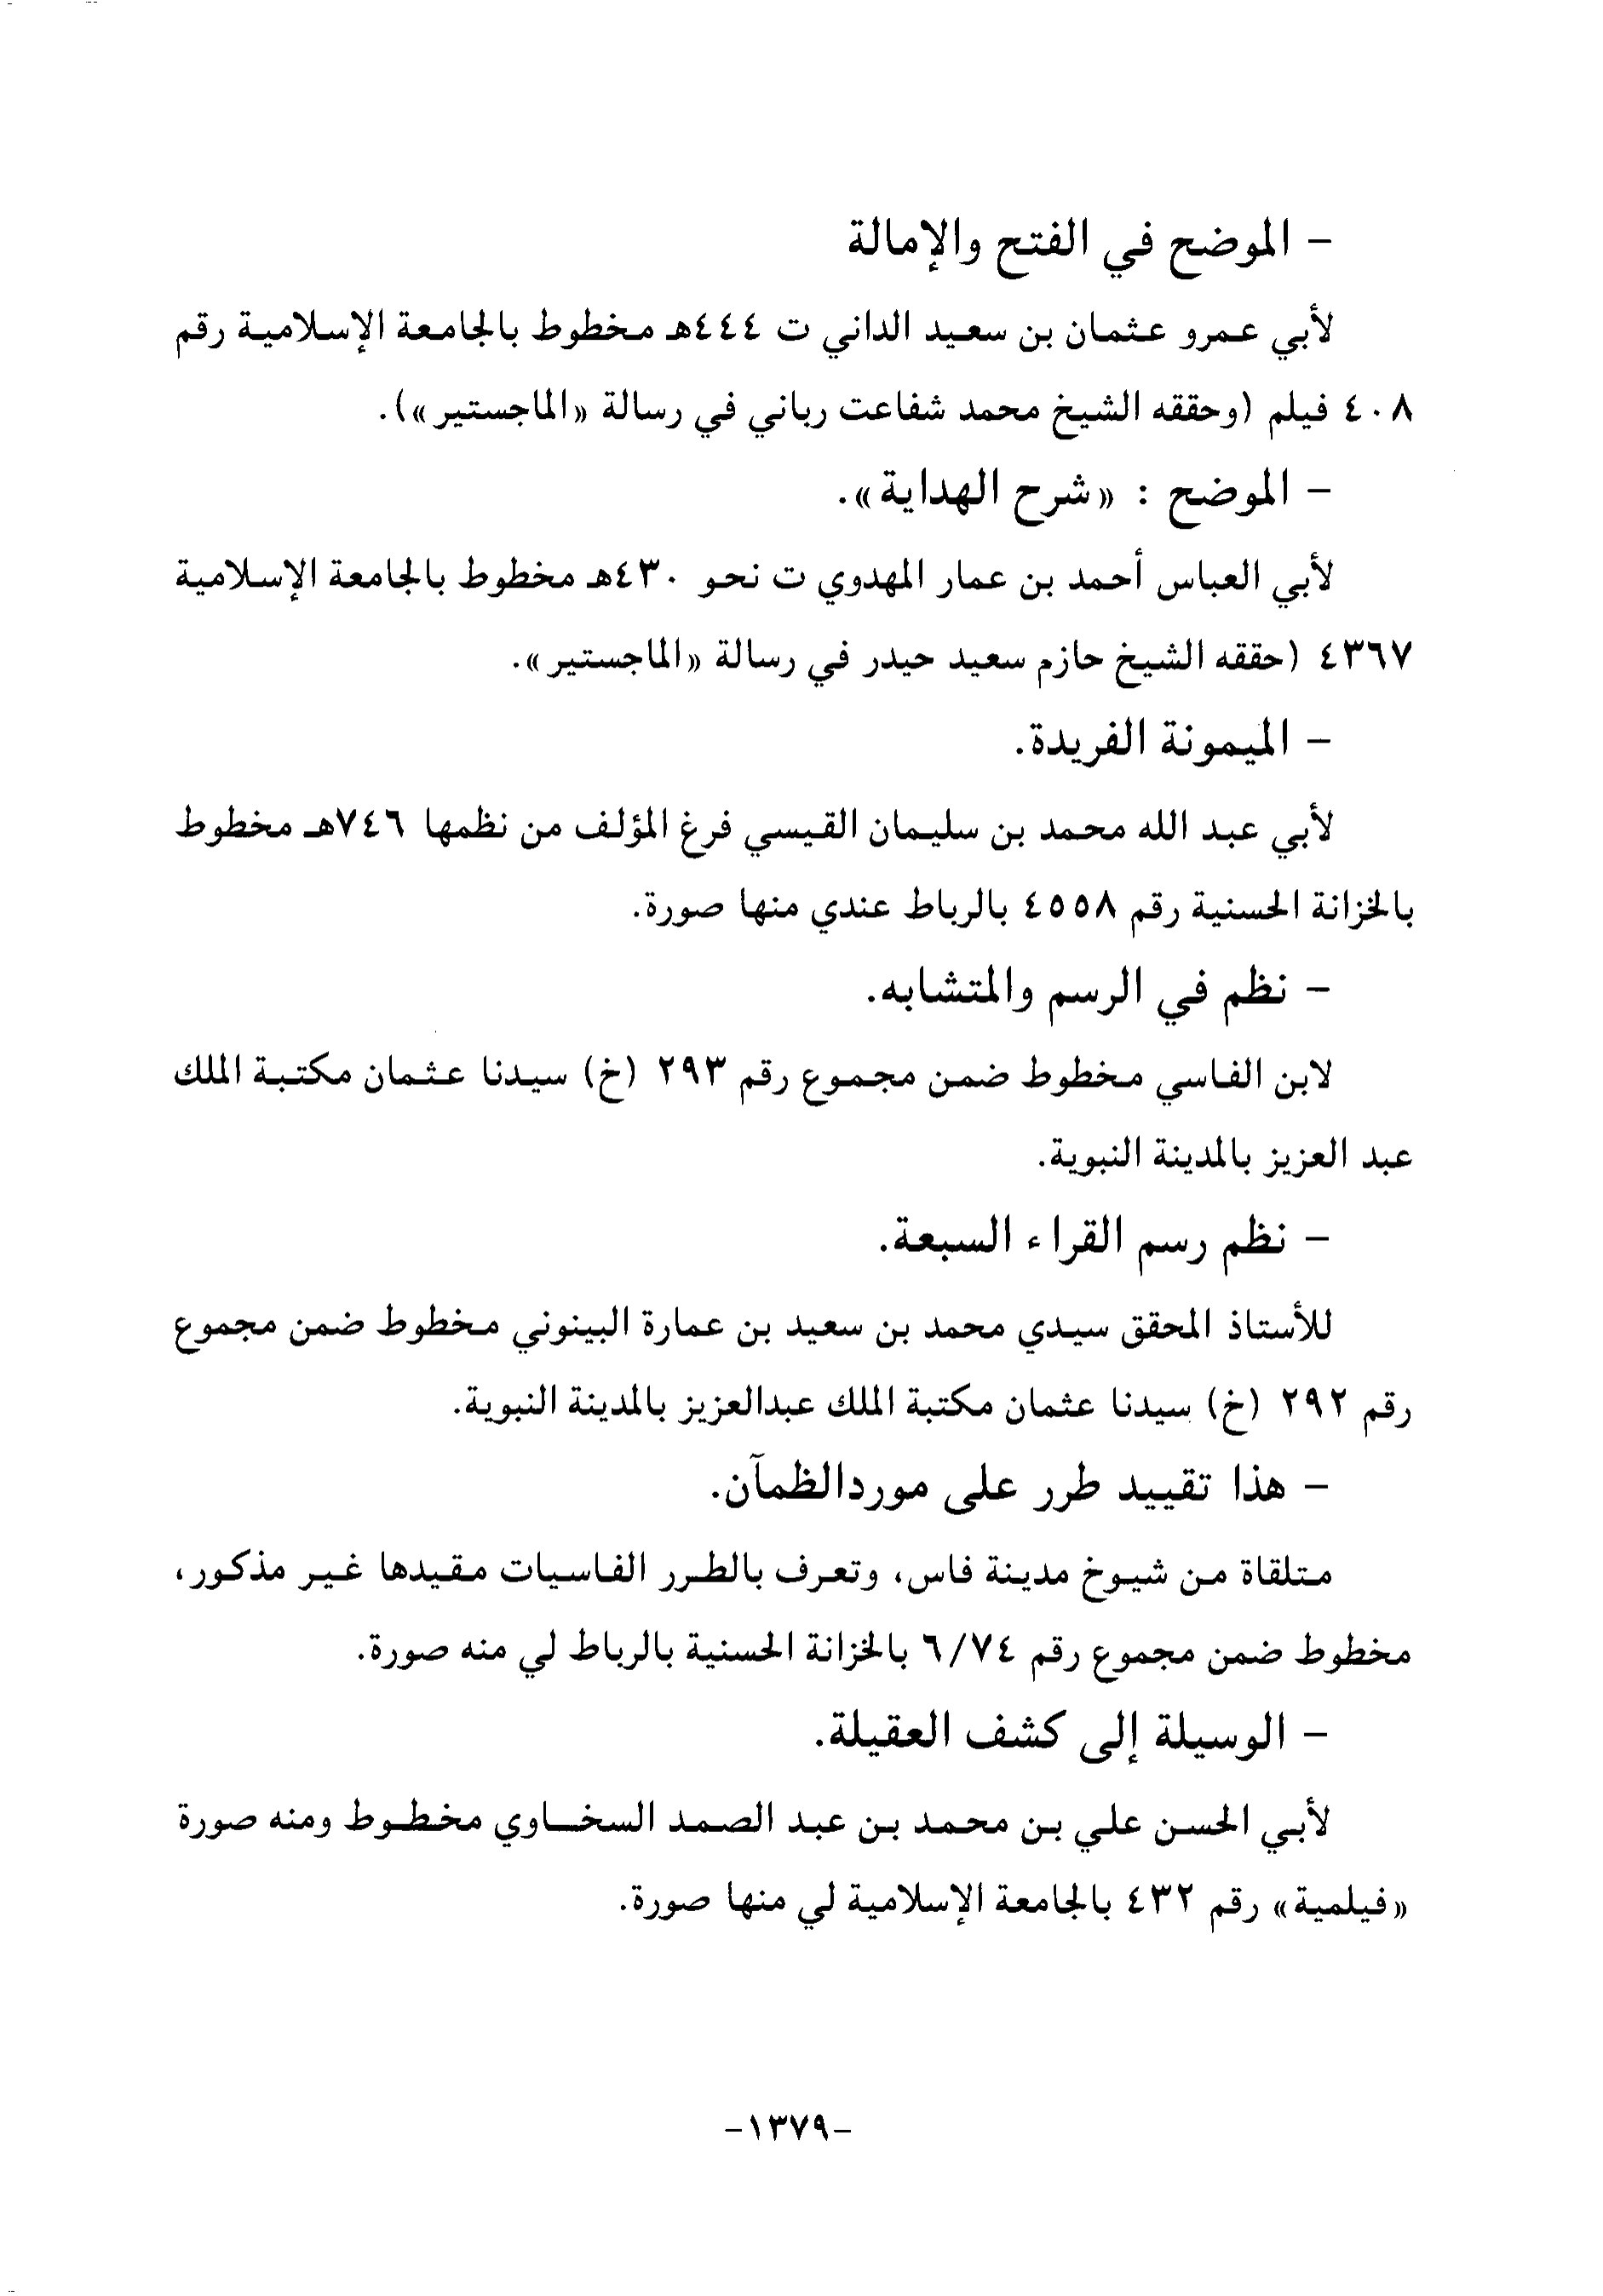 - الموضح في الفتح والإمالة
لأبي عمرو عثمان بن سعيد الداني ت ٤٤٤هـ مخطوط بالجامعة الإسلامية رقم
٤٠٨ فيلم (وحققه الشيخ محمد شفاعت رباني في رسالة «الماجستير»).
- الموضح : «شرح الهداية».
لأبي العباس أحمد بن عمار المهدوي ت نحو ٤٣٠هـ مخطوط بالجامعة الإسلامية
٤٣٦٧ (حققه الشيخ حازم سعيد حيدر في رسالة «الماجستير».
- الميمونة الفريدة.
لأبي عبد الله محمد بن سليمان القيسي فرغ المؤلف من نظمها ٧٤٦هـ مخطوط
بالخزانة الحسنية رقم ٤٥٥٨ بالرباط عندي منها صورة.
- نظم في الرسم والمتشابه.
لابن الفاسي مخطوط ضمن مجموع رقم ٢٩٣ (خ) سيدنا عثمان مكتبة الملك
عبد العزيز بالمدينة النبوية.
- نظم رسم القراء السبعة.
للأستاذ المحقق سيدي محمد بن سعيد بن عمارة البينوني مخطوط ضمن مجموع
رقم ٢٩٢ (خ) سيدنا عثمان مكتبة الملك عبدالعزيز بالمدينة النبوية.
- هذا تقييد طرر على موردالظمآن.
متلقاة من شيوخ مدينة فاس، وتعرف بالطرر الفاسيات مقيدها غير مذكور،
مخطوط ضمن مجموع رقم ٦/٧٤ بالخزانة الحسنية بالرباط لي منه صورة.
- الوسيلة إلى كشف العقيلة.
لأبي الحسن علي بن محمد بن عبد الصمد السخاوي مخطوط ومنه صورة
«فيلمية» رقم ٤٣٢ بالجامعة الإسلامية لي منها صورة.
-١٣٧٩-